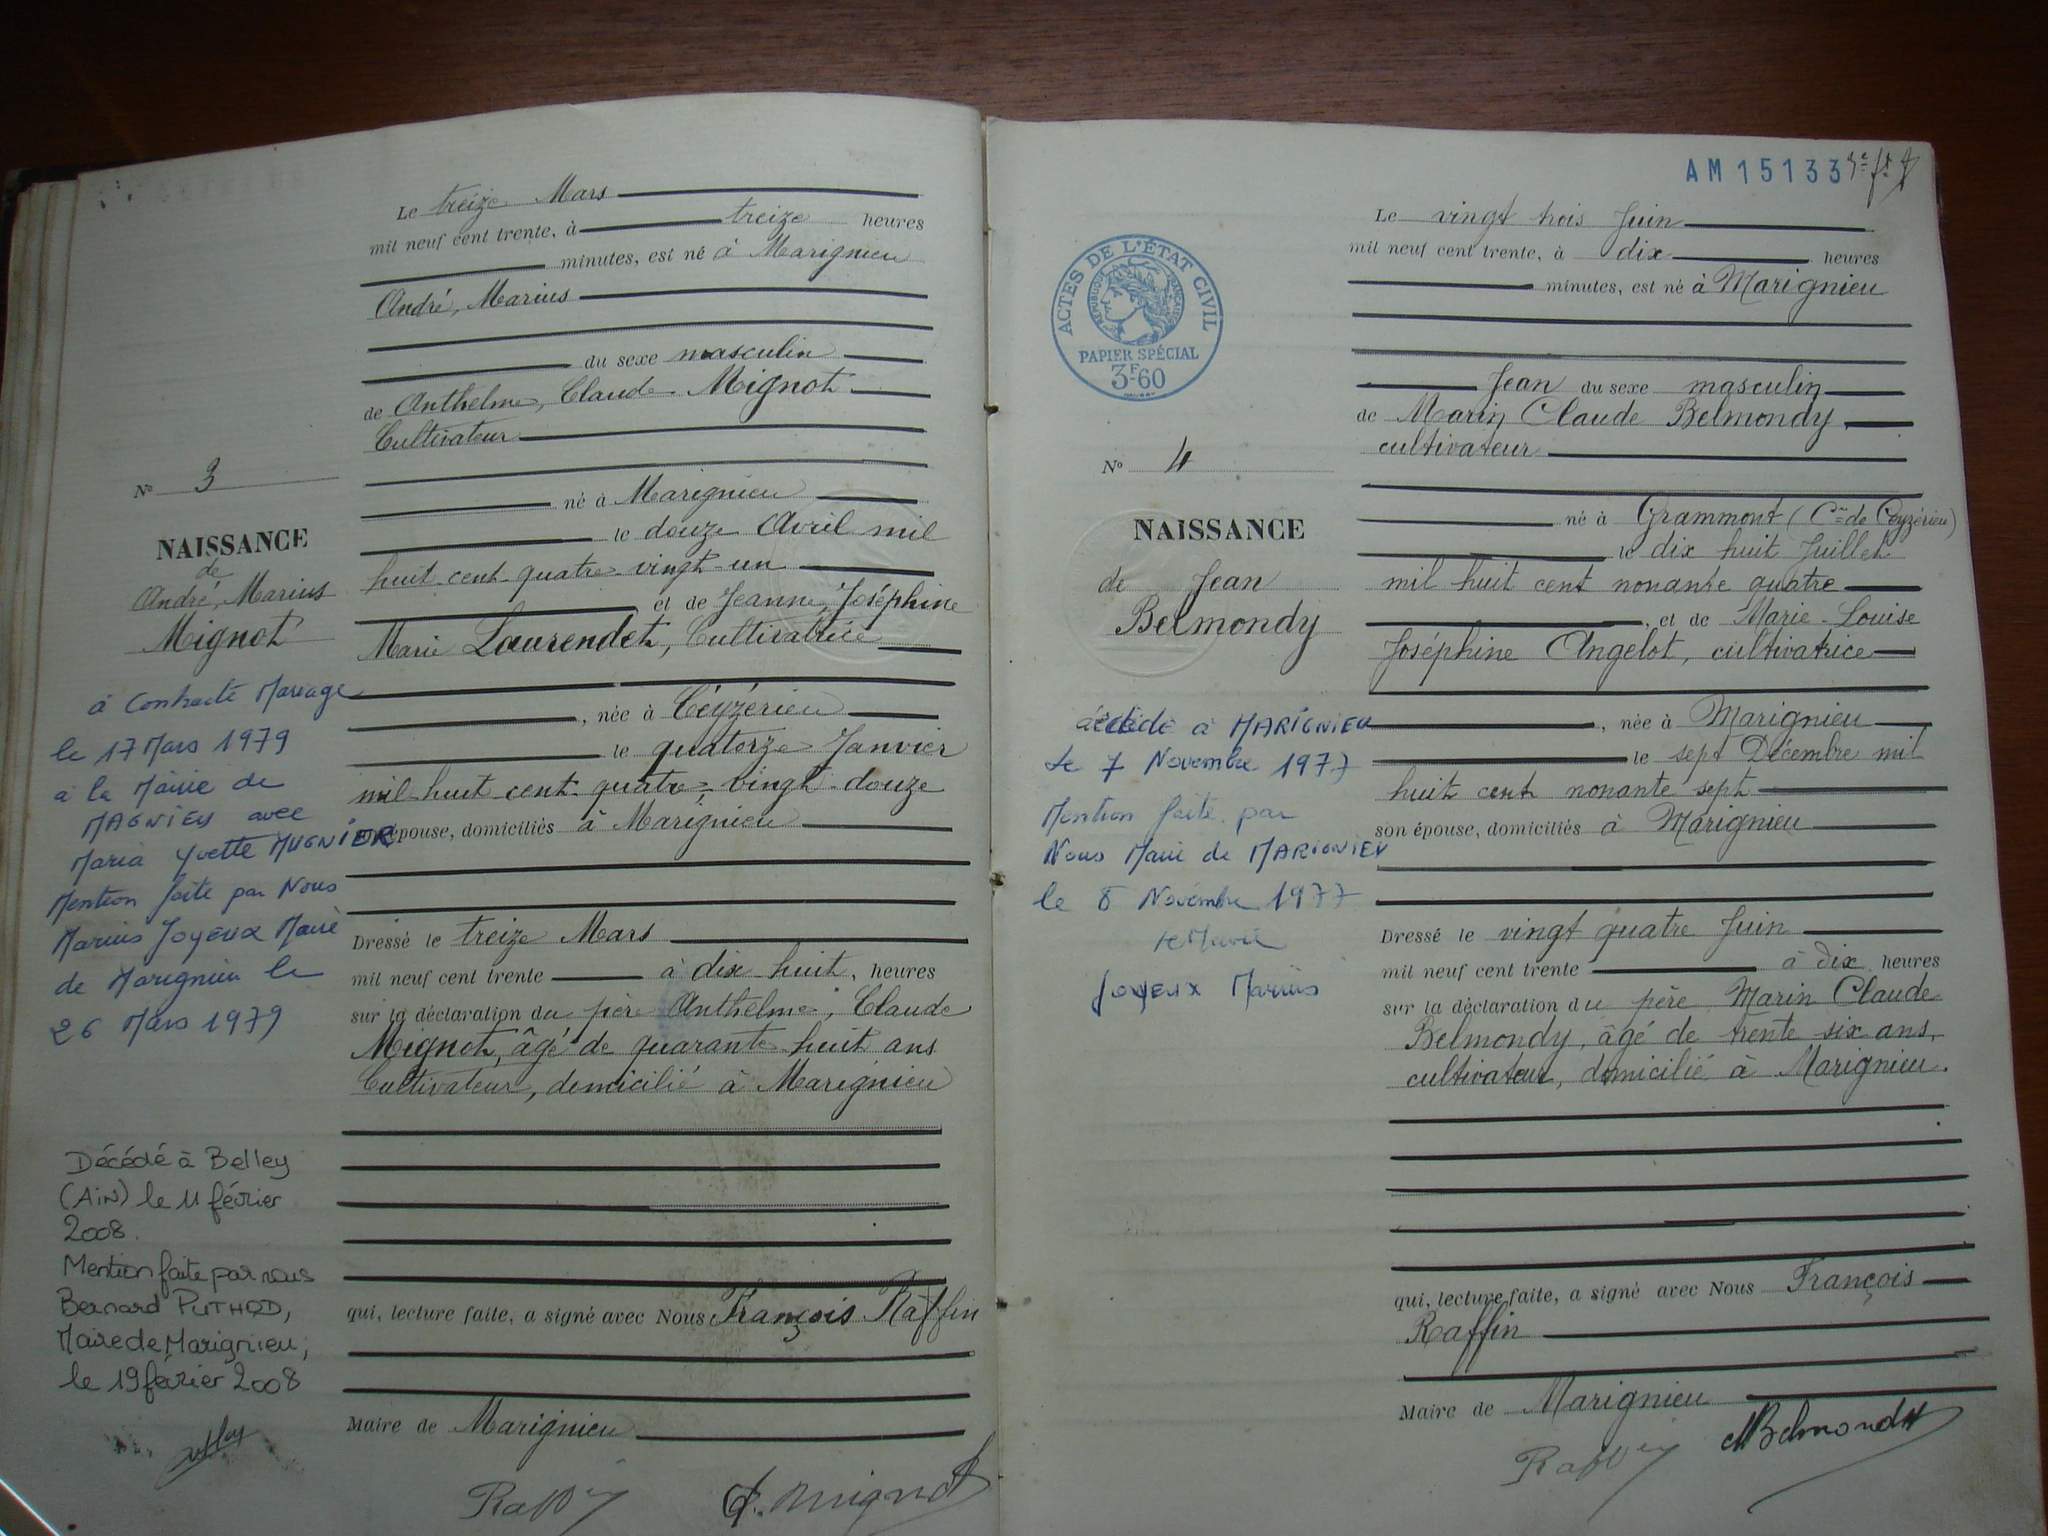 Le treize Mars
mil neuf cent trente, à treize heures
minutes, est né à Marignieu
André, Marius
du sexe masculin
de Anthelme, Claude Mignot
Cultivateur
né à Marignieu
le douze Avril mil
huit cent quatre vingt un
et de Jeanne, Joséphine
Marie Laurendet, Cultivatrice
, née à Céyzérieu
le quatorze Janvier
mil huit cent quatre-vingt-douze
épouse, domiciliés à Marignieu
Dressé le treize Mars
mil neuf cent trente à dix huit, heures
sur la déclaration du père Anthelme, Claude
Mignot, âgé de quarante huit ans
Cultivateur, domicilié à Marignieu
qui, lecture faite, a signé avec Nous François Raffin
Maire de Marignieu
Raffin
Mignot
N° 3
NAISSANCE
de
André, Marius
Mignot
à Contracté Mariage
le 17 Mars 1979
à la Mairie de
MAGNIEU avec
Maria Yvette MUGNIER
Mention faite par Nous
Marius Joyeux Maire
de Marignieu le
26 Mars 1979
Décédé à Belley
(Ain) le 11 février
2008.
Mention faite par nous
Bernard PUTHOD,
Maire de Marignieu,
le 19 février 2008
AM 15133
ACTES DE L'ÉTAT CIVIL
RÉPUBLIQUE FRANÇAISE
PAPIER SPÉCIAL
3F60
Le vingt trois Juin
mil neuf cent trente, à dix heures
minutes, est né à Marignieu
Jean du sexe masculin
de Marin Claude Belmondy,
cultivateur
né à Grammont (Cne de Ceyzérieu)
le dix huit Juillet
mil huit cent nonante quatre
, et de Marie-Louise
Joséphine Angelot, cultivatrice
, née à Marignieu
le sept Décembre mil
huit cent nonante sept
son épouse, domiciliés à Marignieu
Dressé le vingt quatre Juin
mil neuf cent trente à dix heures
sur la déclaration du père Marin Claude
Belmondy, âgé de trente six ans,
cultivateur, domicilié à Marignieu.
qui, lecture faite, a signé avec Nous François
Raffin
Maire de Marignieu
Raffin
MBelmondy
N° 4
NAISSANCE
de Jean
Belmondy
décédé à MARIGNIEU
Le 7 Novembre 1977
Mention faite par
Nous Maire de MARIGNIEU
le 8 Novembre 1977
le Maire
Joyeux Marius